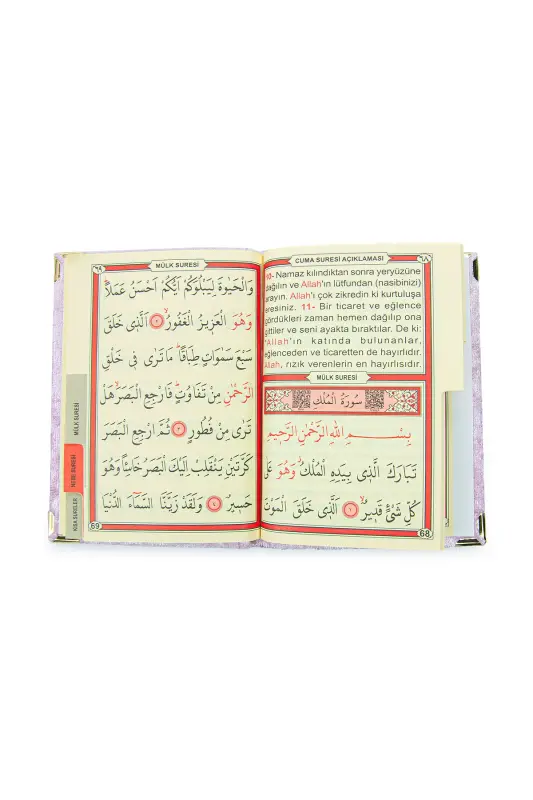 CUMA SURESİ AÇIKLAMASI
٦٨
10- Namaz kılındıktan sonra yeryüzüne
dağılın ve Allah'ın lütfundan (nasibinizi)
arayın. Allah'ı çok zikredin ki kurtuluşa
eresiniz. 11- Bir ticaret ve eğlence
gördükleri zaman hemen dağılıp ona
gittiler ve seni ayakta bıraktılar. De ki:
"Allah'ın katında bulunanlar,
eğlenceden ve ticaretten de hayırlıdır.
Allah, rızık verenlerin en hayırlısıdır.
MÜLK SURESİ
سُورَةُ الْمُلْكِ
بِسْــمِ اللّٰهِ الرَّحْمٰنِ الرَّحٖيمِ
تَبَارَكَ الَّذٖى بِيَدِهِ الْمُلْكُ وَهُوَ عَلٰى
كُلِّ شَىْءٍ قَدٖيرٌ ١ اَلَّذٖى خَلَقَ الْمَوْتَ
68
٦٩
MÜLK SURESİ
وَالْحَيٰوةَ لِيَبْلُوَكُمْ اَيُّكُمْ اَحْسَنُ عَمَلًا
وَهُوَ الْعَزٖيزُ الْغَفُورُ ٢ اَلَّذٖى خَلَقَ
سَبْعَ سَمٰوَاتٍ طِبَاقًا مَا تَرٰى فٖى خَلْقِ
الرَّحْمٰنِ مِنْ تَفَاوُتٍ فَارْجِعِ الْبَصَرَ هَلْ
تَرٰى مِنْ فُطُورٍ ٣ ثُمَّ ارْجِعِ الْبَصَرَ
كَرَّتَيْنِ يَنْقَلِبْ اِلَيْكَ الْبَصَرُ خَاسِئًا وَهُوَ
حَسٖيرٌ ٤ وَلَقَدْ زَيَّنَّا السَّمَٓاءَ الدُّنْيَا
69
MÜLK SURESİ
NEBE SURESİ
KISA SURELER